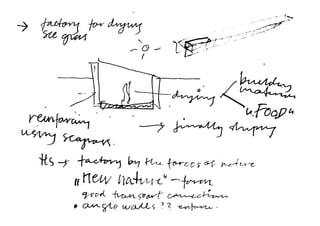 → factory for drying
see gras
building
material
drying
"FOOD"
reinforcing
using seagrass
→ finally shipping
→ factory by the forces of nature
"new nature" - form
good transport connection
• angle walls ?? entrance.